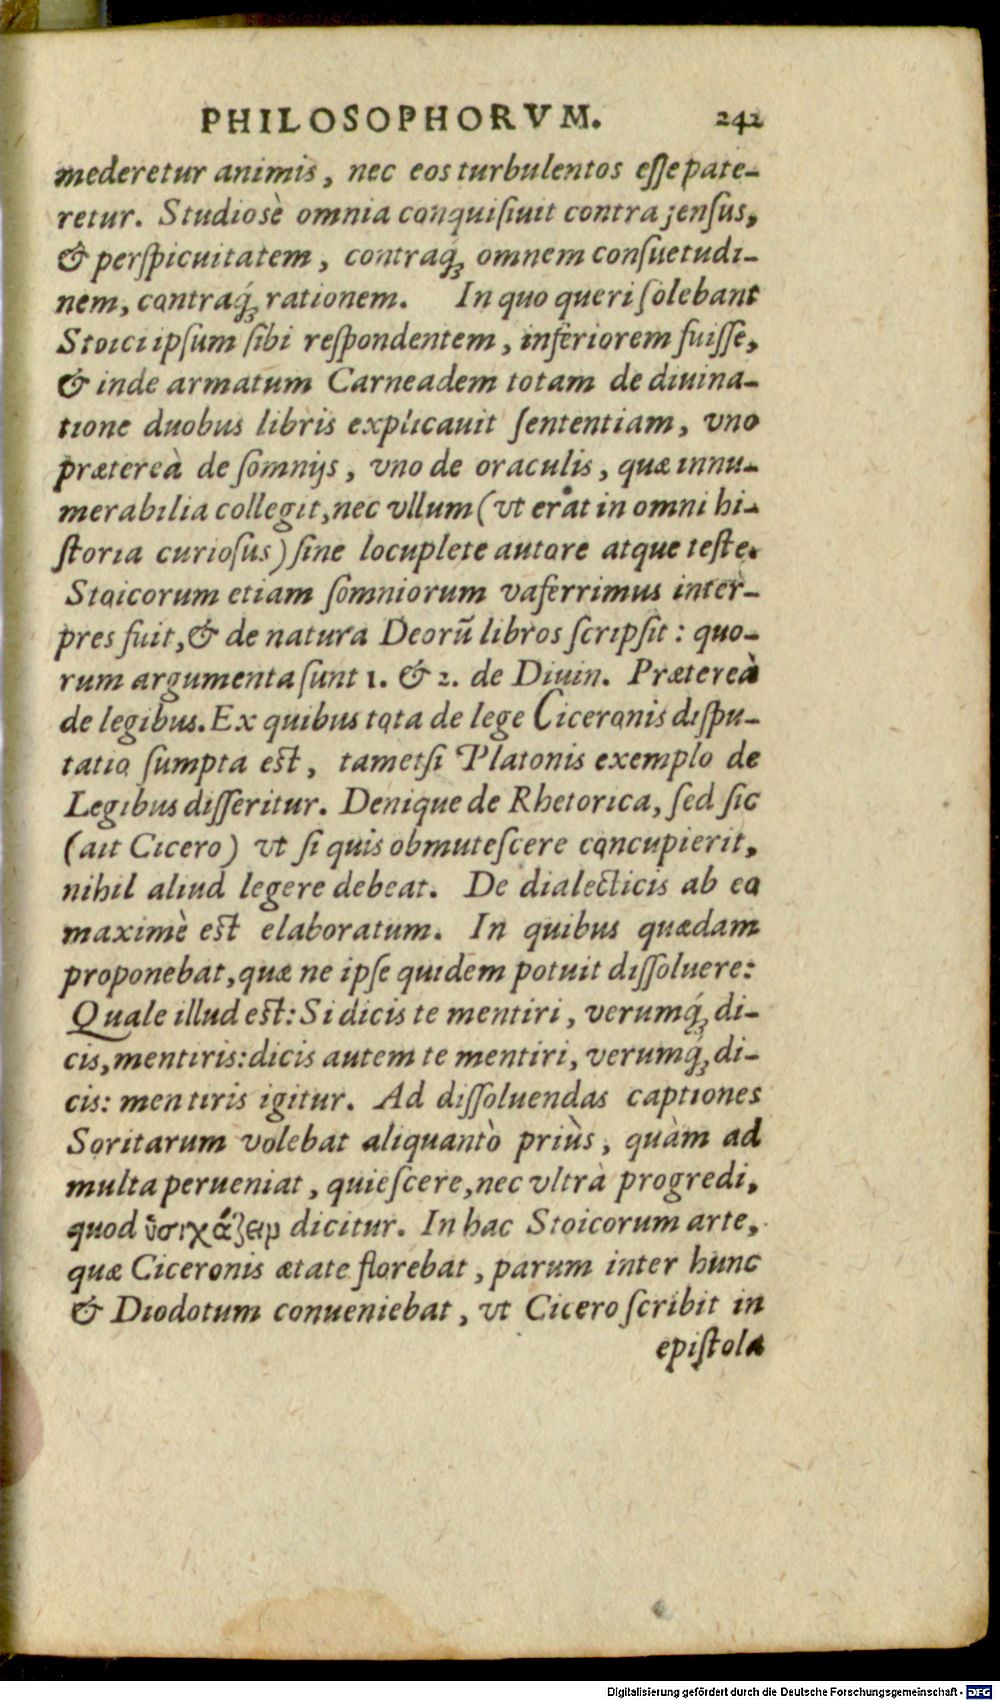 PHILOSOPHORVM. 242
mederetur animis, nec eos turbulentos eſſe pate-
retur. Studiosè omnia conquiſiuit contra ſenſus,
& perſpicuitatem, contraq́ꝫ omnem conſuetudi-
nem, contraq́ꝫ rationem. In quo queri ſolebant
Stoici ipſum ſibi reſpondentem, inferiorem fuiſſe,
& inde armatum Carneadem totam de diuina-
tione duobus libris explicauit ſententiam, vno
prætereà de ſomnijs, vno de oraculis, quæ innu-
merabilia collegit, nec vllum (vt erat in omni hi-
ſtoria curioſus) ſine locuplete autore atque teſte.
Stoicorum etiam ſomniorum vaferrimus inter-
pres fuit, & de natura Deorũ libros ſcripſit: quo-
rum argumenta ſunt 1. & 2. de Diuin. Prætereà
de legibus. Ex quibus tota de lege Ciceronis diſpu-
tatio ſumpta eſt, tametſi Platonis exemplo de
Legibus diſſeritur. Denique de Rhetorica, ſed ſic
(ait Cicero) vt ſi quis obmuteſcere concupierit,
nihil aliud legere debeat. De dialecticis ab eo
maximè eſt elaboratum. In quibus quædam
proponebat, quæ ne ipſe quidem potuit diſſoluere:
Quale illud eſt: Si dicis te mentiri, verumq́ꝫ di-
cis, mentiris: dicis autem te mentiri, verumq́ꝫ di-
cis: mentiris igitur. Ad diſſoluendas captiones
Soritarum volebat aliquantò priùs, quàm ad
multa perueniat, quieſcere, nec vltrà progredi,
quod ὑσιχάζειν dicitur. In hac Stoicorum arte,
quæ Ciceronis ætate florebat, parum inter hunc
& Diodotum conueniebat, vt Cicero ſcribit in
epiſtola
Digitalisierung gefördert durch die Deutsche Forschungsgemeinschaft - DFG